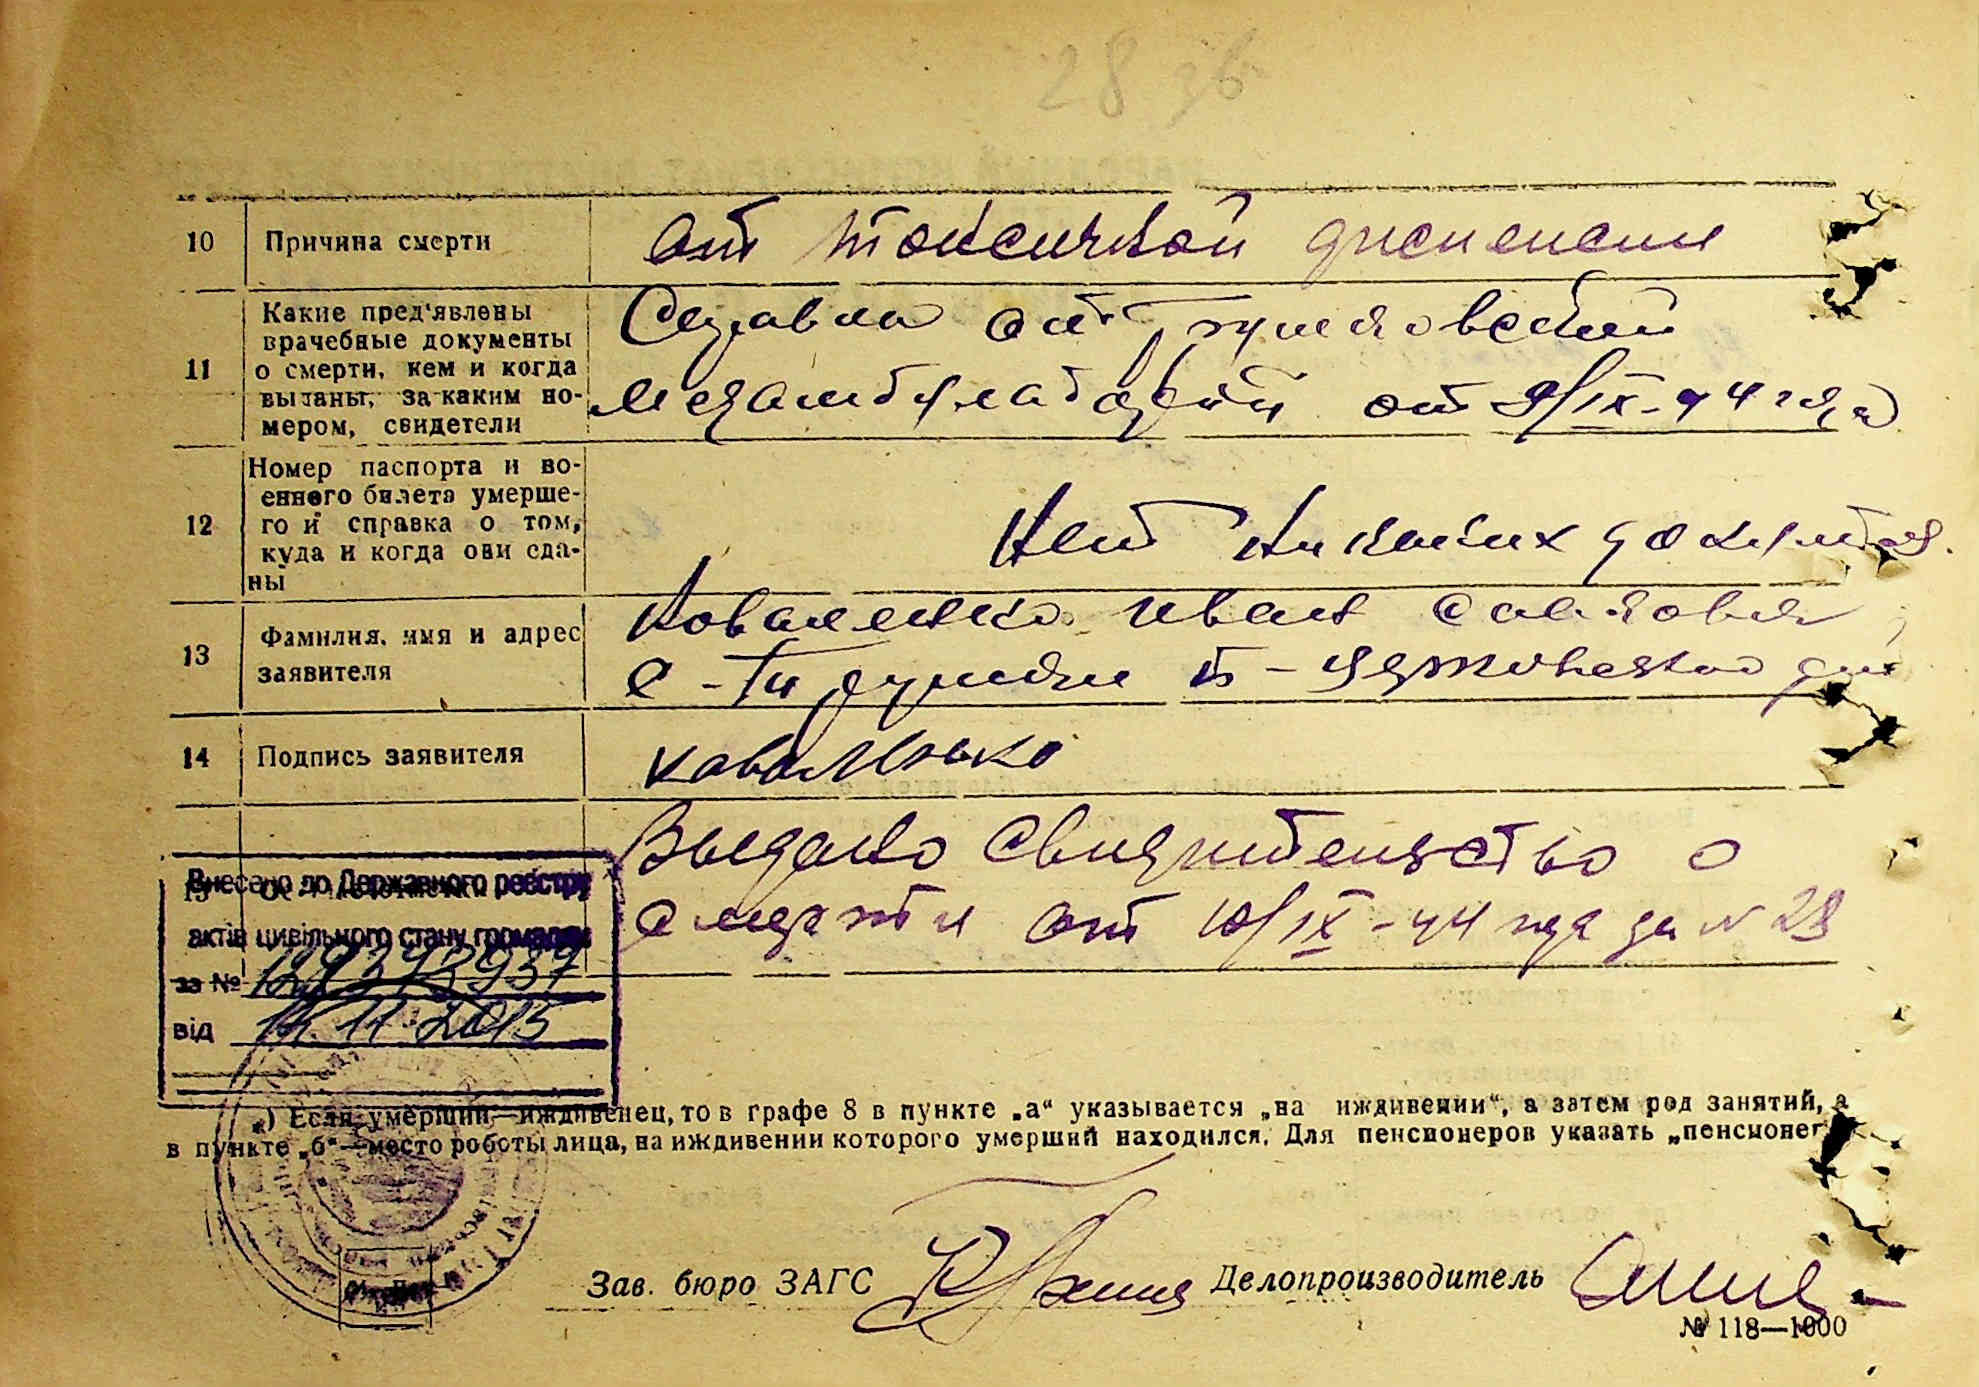 28 зв
10 Причина смерти
от токсичкой диспепсии
11 Какие пред'явлены
врачебные документы
о смерти, кем и когда
выданы, за каким но-
мером, свидетели
Справка от
медамбулаторий от 9/IX-44 года
12 Номер паспорта и во-
енного билета умерше-
го и справка о том,
куда и когда они сда-
ны
Нет никаких
13 Фамилия, имя и адрес
заявителя
Коваленко Иван
с-
14 Подпись заявителя
Коваленько
15
Выдано Свидительство о
смерти от 10/IX-44 года за N 28
Внесено до Державного реєстру
актів цивільного стану громадян
за №
від 14.11.2015
*) Если умерший—иждивенец, то в графе 8 в пункте „а“ указывается „на иждивении“, а затем род занятий, а
в пункте „б“—место роботы лица, на иждивении которого умерший находился. Для пенсионеров указать „пенсионер
Зав. бюро ЗАГС Делопроизводитель
№ 118—1000